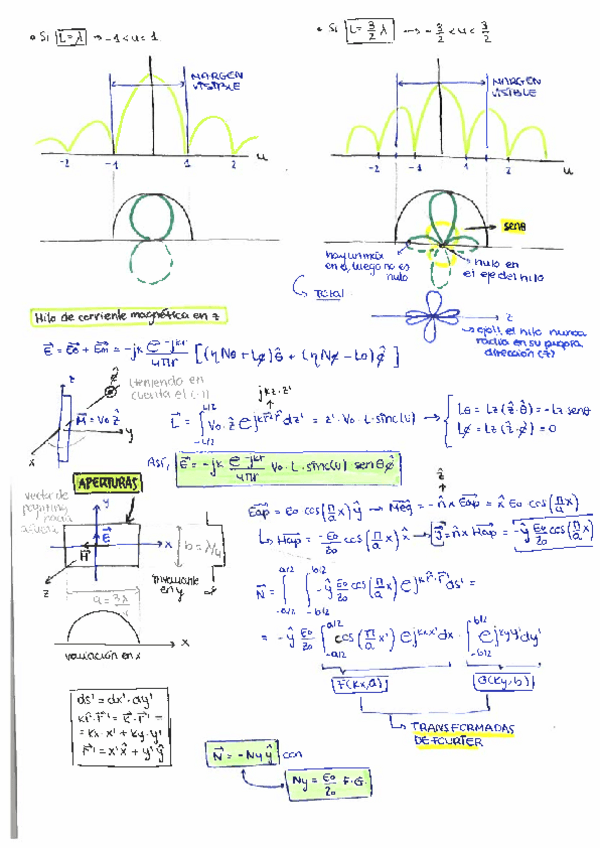 • Si L=λ → -1<u<1
MARGEN VISIBLE
-2 -1 1 2 u
• Si L=3/2 λ → -3/2<u<3/2
MARGEN VISIBLE
-2 -1 1 2 u
senθ
nulo en el eje del hilo
en él, luego no es nulo
Total
z
ojo!! el hilo nunca radia en su propia dirección (z)
Hilo de corriente magnética en z
E = Eo + Em = -jk e^-jkr/4πr [(ηNθ+Lϕ)θ̂ + (ηNϕ-Lθ)ϕ̂]
teniendo en cuenta el (-1)
z
M=Vo ẑ
y
x
jkz·z'
L = ∫_-L/2^L/2 Vo·ẑ e^jkr̂·r' dz' = z'·Vo·L·sinc(u) →
Lθ = Lz(ẑ·θ̂) = -Lz senθ
Lϕ = Lz(ẑ·ϕ̂) = 0
Así, E = -jk e^-jkr/4πr Vo·L·sinc(u) senθ ϕ̂
APERTURAS
vector de poynting hacia afuera
y
E
H
x
z
b=λ/4
Invariante en y
a=3λ
variación en x
x
Eap = Eo cos(π/a x) ŷ → Meq = -n̂ x Eap = x̂ Eo cos(π/a x)
ẑ
Hap = -Eo/Zo cos(π/a x) x̂ → J = n̂ x Hap = -ŷ Eo/Zo cos(π/a x)
N = ∫_-a/2^a/2 ∫_-b/2^b/2 -ŷ Eo/Zo cos(π/a x') e^jkr̂·r' ds' =
= -ŷ Eo/Zo ∫_-a/2^a/2 cos(π/a x') e^jkxx' dx · ∫_-b/2^b/2 e^jkyy' dy'
F(kx,a) G(ky,b)
TRANSFORMADAS DE FOURIER
ds' = dx'·dy'
kr̂·r' = k·r' =
= kx·x' + ky·y'
r' = x'x̂ + y'ŷ
N = -Ny ŷ con
Ny = Eo/Zo F·G